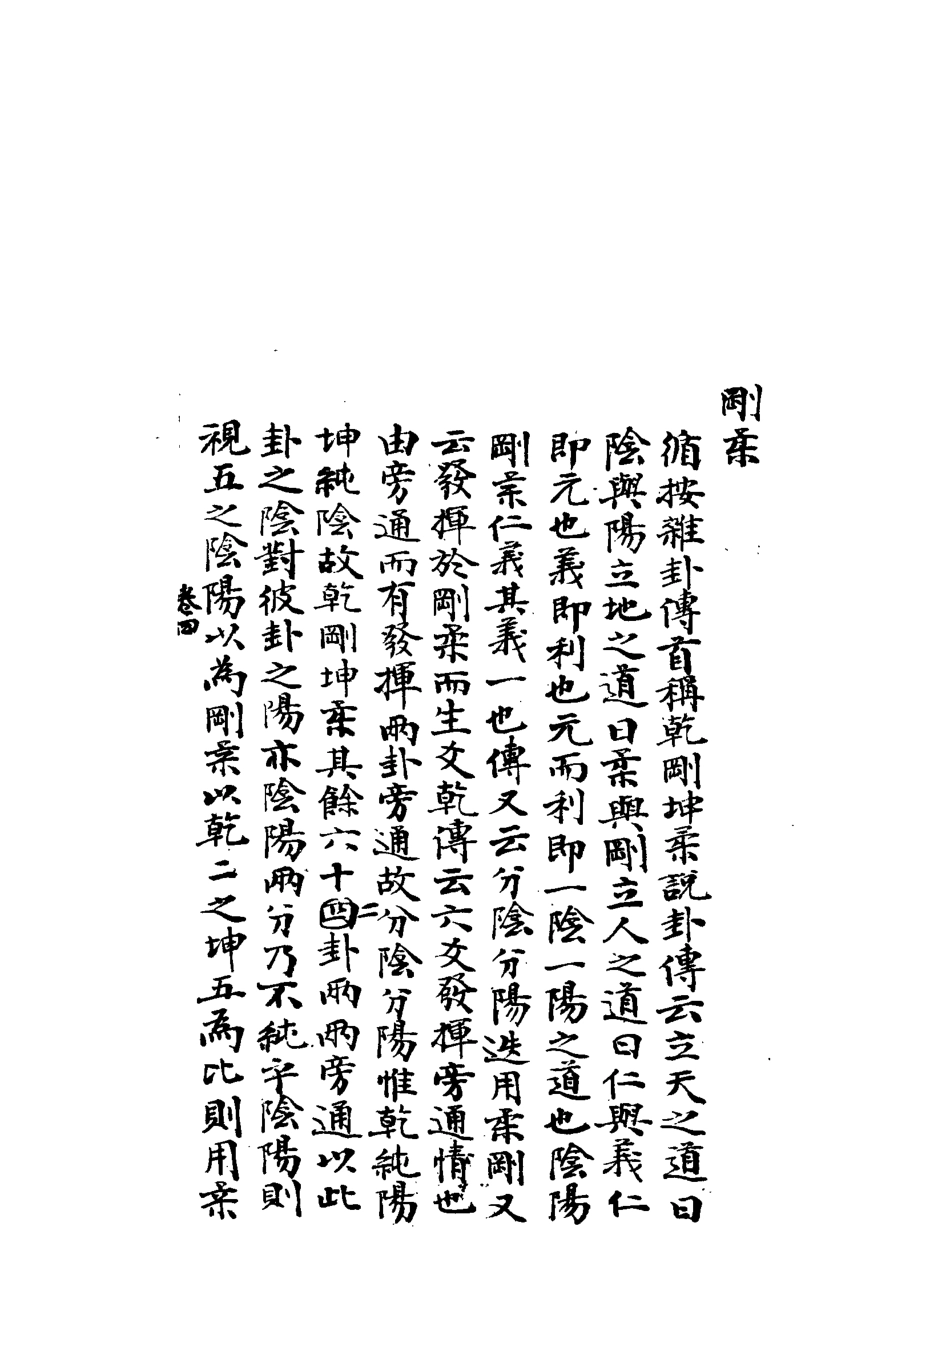 剛柔
循按雜卦傳首稱乾剛坤柔說卦傳云立天之道曰
陰與陽立地之道曰柔與剛立人之道曰仁與義仁
即元也義即利也元而利即一陰一陽之道也陰陽
剛柔仁義其義一也傳又云分陰分陽迭用柔剛又
云發揮於剛柔而生爻乾傳云六爻發揮旁通情也
由旁通而有發揮兩卦旁通故分陰分陽惟乾純陽
坤純陰故乾剛坤柔其餘六十四二卦兩兩旁通以此
卦之陰對彼卦之陽亦陰陽兩分乃不純乎陰陽則
視五之陰陽以為剛柔以乾二之坤五為比則用柔
卷四